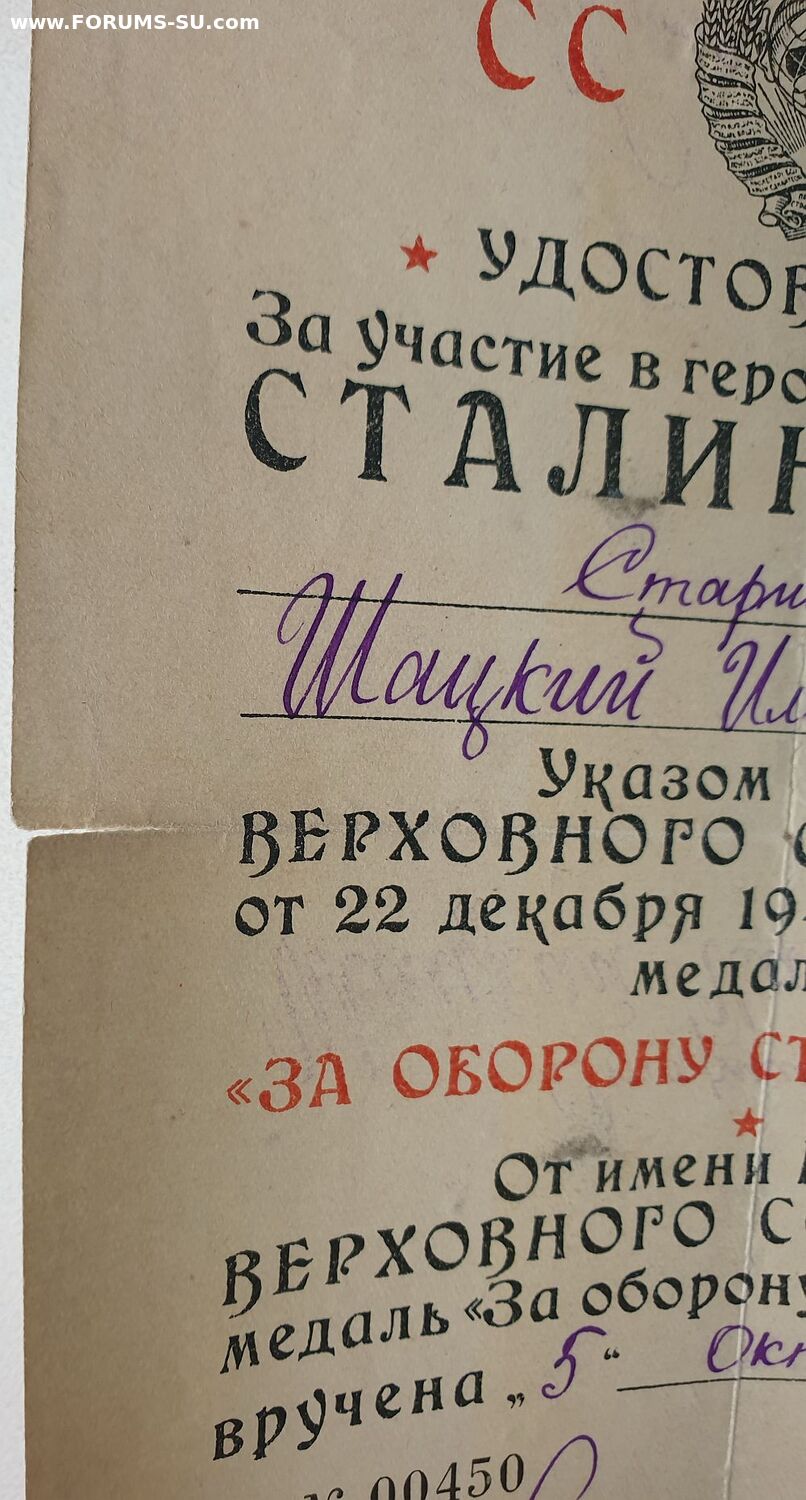 www.FORUMS-SU.com
СС
УДОСТОВ
За участие в геро
СТАЛИН
Стари
Шацкий Ил
Указом
ВЕРХОВНОГО С
от 22 декабря 19
медал
«ЗА ОБОРОНУ СТ
От имени
ВЕРХОВНОГО СО
медаль «За оборону
вручена „5“ Окт
№ 00450